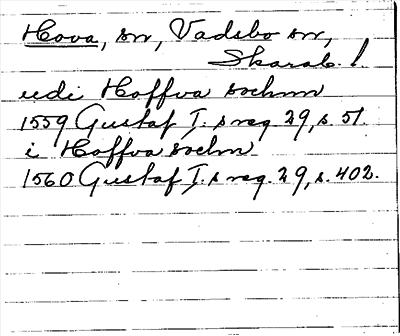 Hova, sn, Vadsbo sn,
Skarab. l.
udi Hoffva sochnn
1559 Gustaf I:s reg. 29, s. 51.
i Hoffva sochn
1560 Gustaf I:s reg. 29, s. 402.